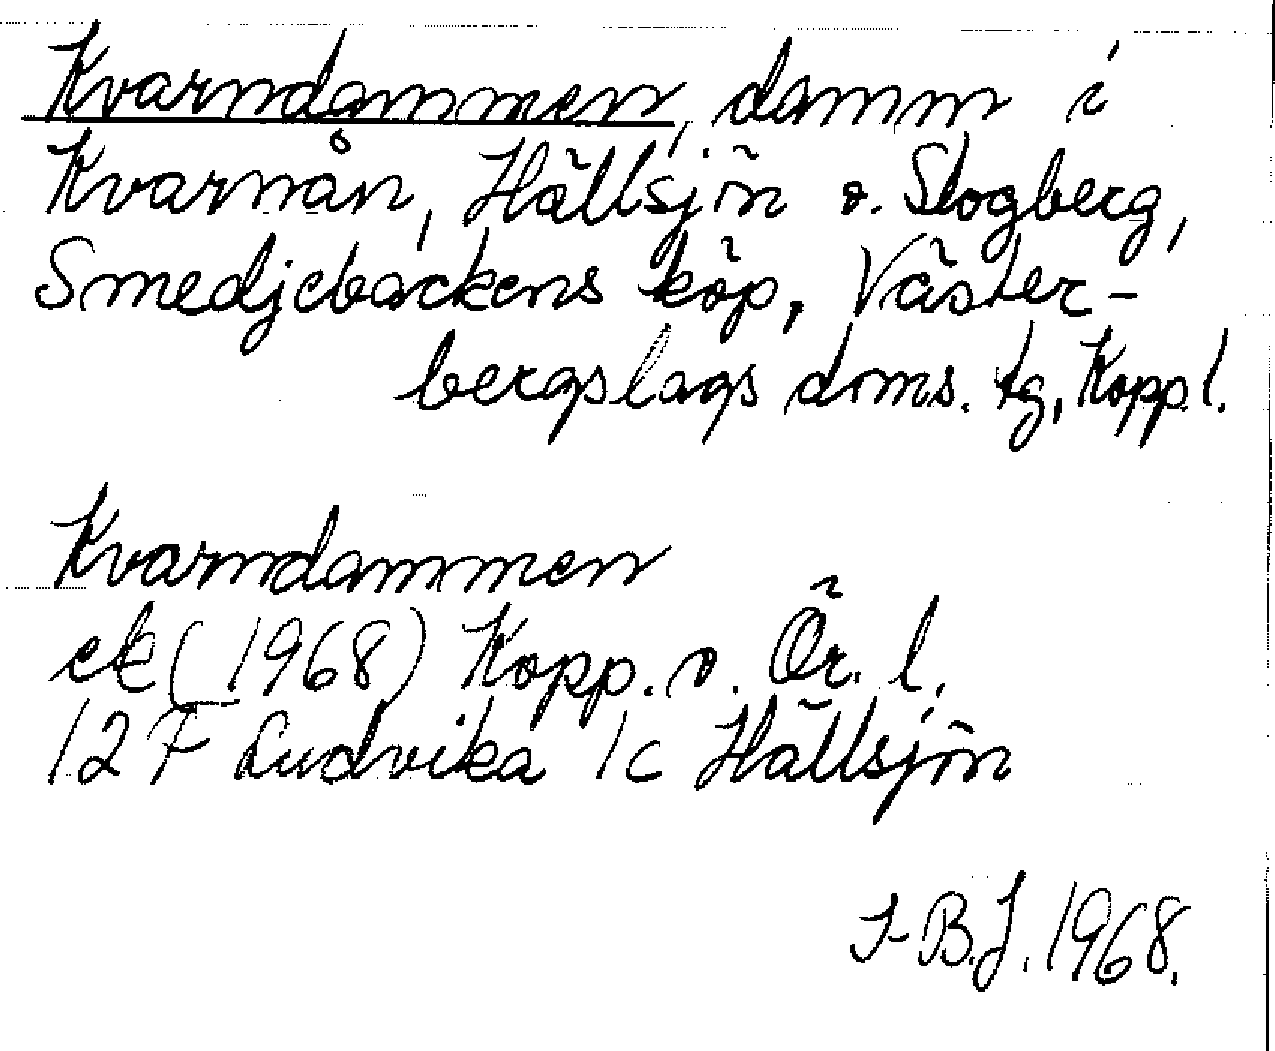 Kvarndammen, damm i
Kvarnån, Hällsjön o. Skogberg,
Smedjebackens köp, Väster-
bergslags doms. tg, Kopp l.
Kvarndammen
ek (1968) Kopp. o. Ör. l.
12 F Ludvika 1c Hällsjön
I-B.J. 1968.